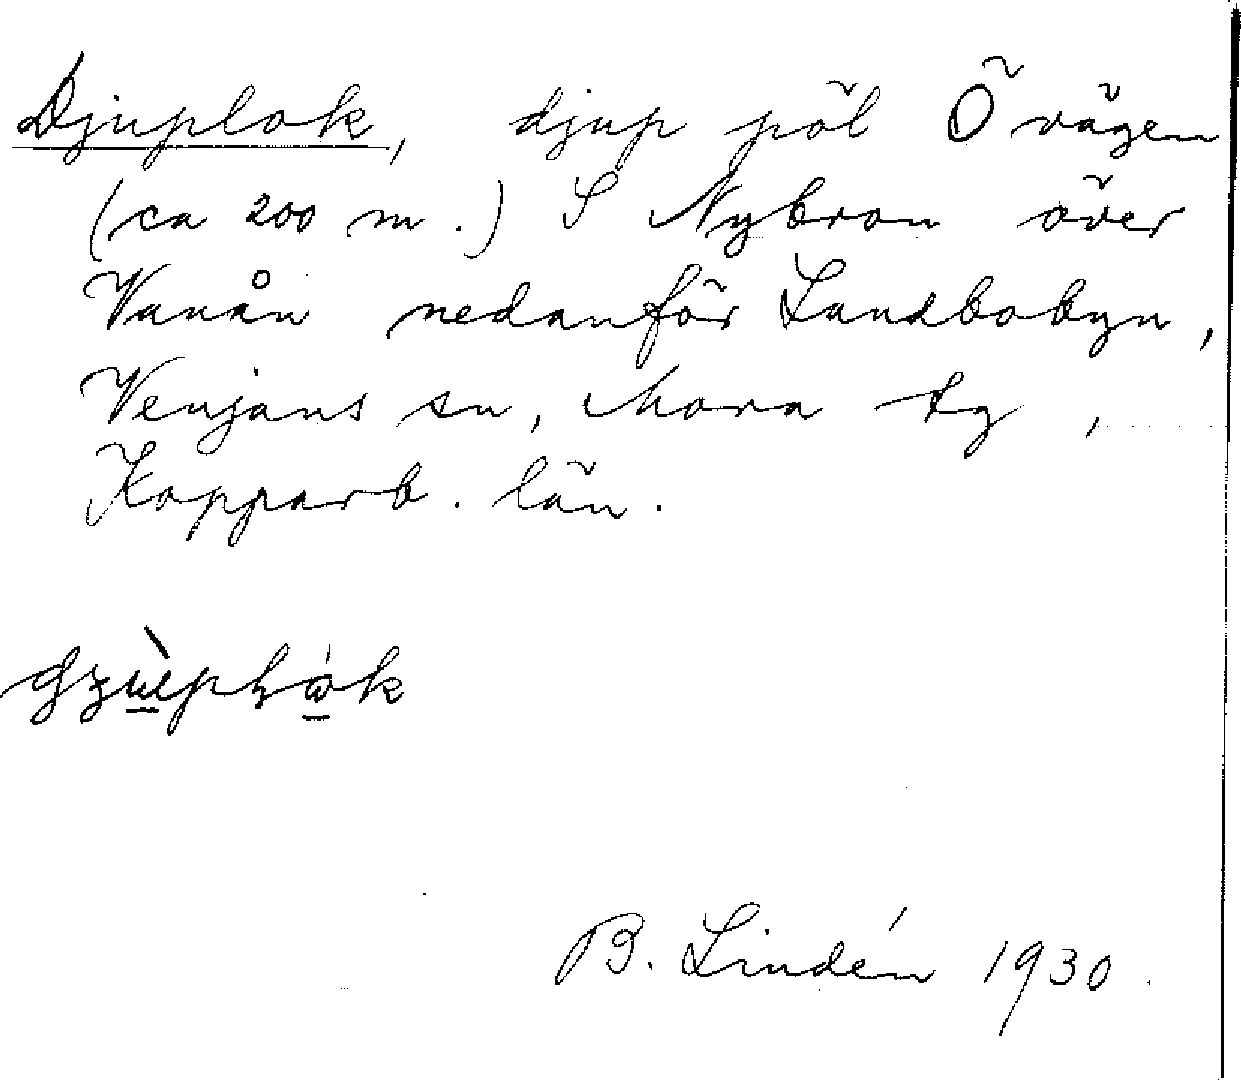 Djuplok, djup pöl Ö vägen
(ca 200 m.) S Nybron över
Vanån nedanför Landbobyn,
Venjans sn, Mora tg,
Kopparb. län.
B. Lindén 1930.